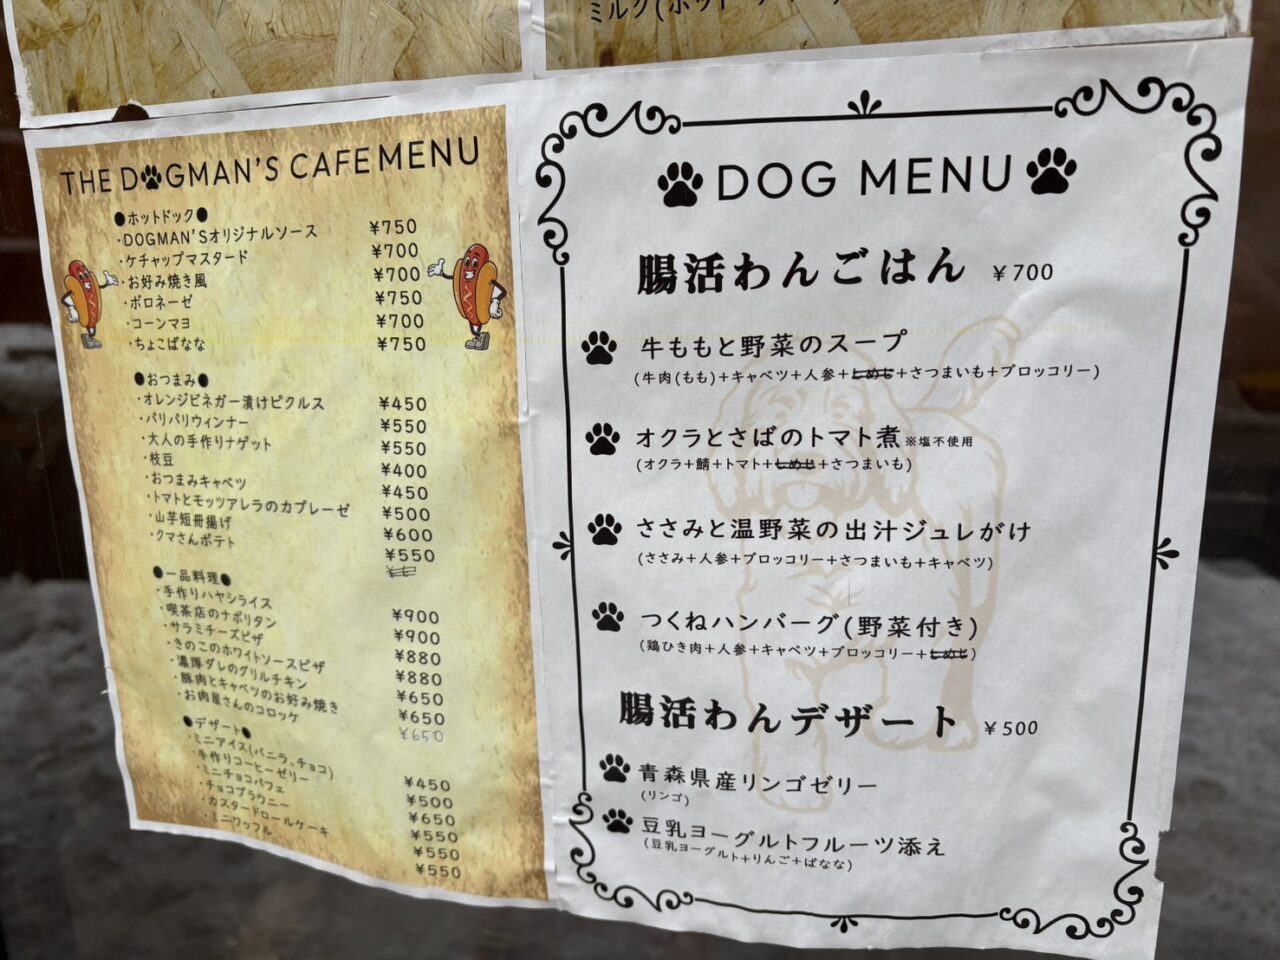 ミルク(ホット
THE DOGMAN'S CAFE MENU
●ホットドック●
・DOGMAN'Sオリジナルソース ¥750
・ケチャップマスタード ¥700
・お好み焼き風 ¥700
・ボロネーゼ ¥750
・コーンマヨ ¥700
・ちょこばなな ¥750
●おつまみ●
・オレンジビネガー漬けピクルス ¥450
・パリパリウィンナー ¥550
・大人の手作りナゲット ¥550
・枝豆 ¥400
・おつまみキャベツ ¥450
・トマトとモッツアレラのカプレーゼ ¥500
・山芋短冊揚げ ¥600
・クマさんポテト ¥550
●一品料理●
・手作りハヤシライス ¥900
・喫茶店のナポリタン ¥900
・サラミチーズピザ ¥880
・きのこのホワイトソースピザ ¥880
・濃厚ダレのグリルチキン ¥650
・豚肉とキャベツのお好み焼き ¥650
・お肉屋さんのコロッケ ¥650
●デザート●
・ミニアイス(バニラ、チョコ) ¥450
・手作りコーヒーゼリー ¥500
・ミニチョコパフェ ¥650
・チョコブラウニー ¥550
・カスタードロールケーキ ¥550
・ミニワッフル ¥550
DOG MENU
腸活わんごはん ¥700
牛ももと野菜のスープ
(牛肉(もも)+キャベツ+人参+しめじ+さつまいも+ブロッコリー)
オクラとさばのトマト煮 ※塩不使用
(オクラ+鯖+トマト+しめじ+さつまいも)
ささみと温野菜の出汁ジュレがけ
(ささみ+人参+ブロッコリー+さつまいも+キャベツ)
つくねハンバーグ(野菜付き)
(鶏ひき肉+人参+キャベツ+ブロッコリー+しめじ)
腸活わんデザート ¥500
青森県産リンゴゼリー
(リンゴ)
豆乳ヨーグルトフルーツ添え
(豆乳ヨーグルト+りんご+ばなな)